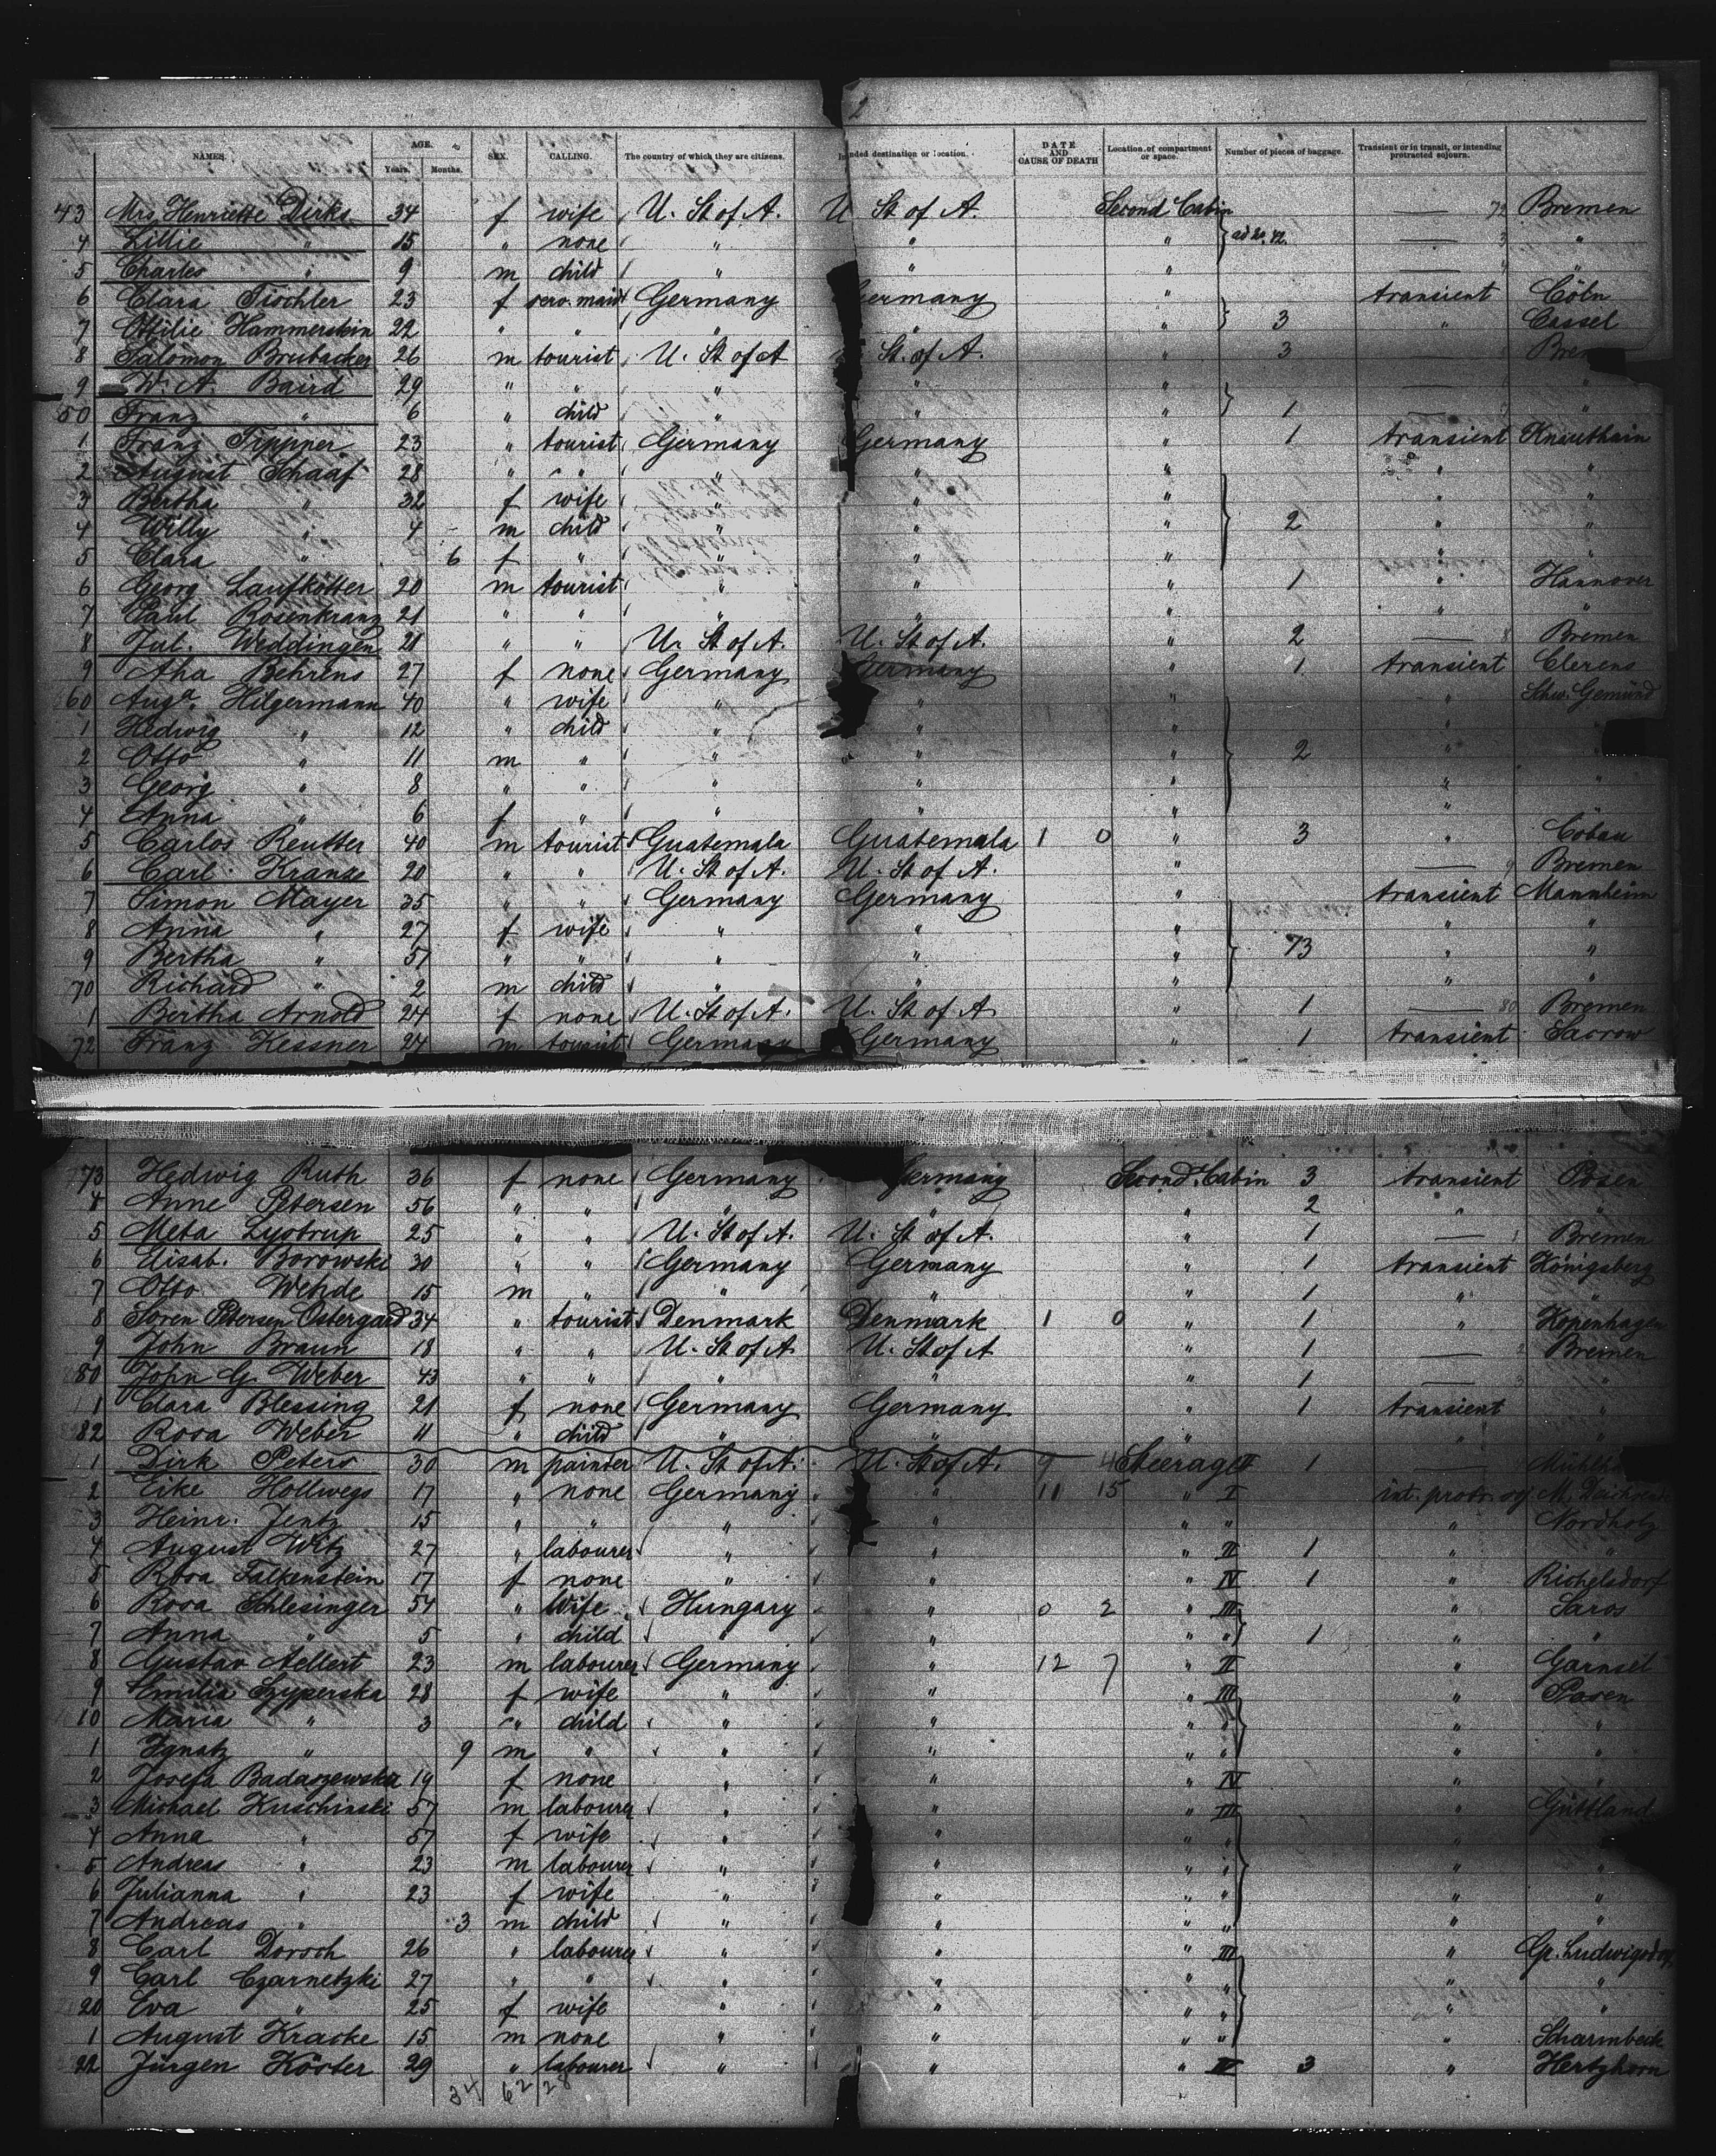 2
NAMES. AGE. Years. Months. SEX. CALLING. The country of which they are citizens. Intended destination or location. DATE AND CAUSE OF DEATH Location of compartment or space. Number of pieces of baggage. Transient or in transit, or intending protracted sojourn.
43 Mrs. Henriette Dirks 34 f wife U. St of A. U St of A. Second Cabin — 72 Bremen
4 Lillie " 15 " none " " " ad No. 42. — 3 "
5 Charles " 9 m child " " " — "
6 Clara Tischler 23 f serv. maid Germany Germany " transient Cöln
7 Ottilie Hammerstein 22 " " " " " 3 " Cassel
8 Salomon Brubacker 26 m tourist U. St of A St. of A. " 3 Bre
9 W. A. Baird 29 " " " " " — "
50 Franz " 6 " child " " " 1 — "
1 Franz Tippner 23 " tourist Germany Germany " 1 transient Knauthain
2 August Schaaf 28 " " " " " " "
3 Bertha " 32 f wife " " " " "
4 Willy " 4 m child " " " 2 " "
5 Clara " 6 f " " " " " "
6 Georg Laufkötter 20 m tourist " " " 1 " Hannover
7 Paul Rosenkranz 21 " " " " " " "
8 Jul. Weddingen 21 " " U. St of A. U. St of A. " 2 — 8 Bremen
9 Atha Behrens 27 f none Germany Germany " 1 transient Clerens
60 Auga. Hilgermann 40 " wife " " " " Schw. Gemünd
1 Hedwig " 12 " child " " " " "
2 Otto " 11 m " " " " 2 " "
3 Georg " 8 " " " " " " "
4 Anna " 6 f " " " " " "
5 Carlos Reutter 40 m tourist Guatemala Guatemala 1 0 " 3 " Coban
6 Carl Kranz 20 " " U. St of A. U. St of A. " — 9 Bremen
7 Simon Mayer 35 " " Germany Germany " transient Mannheim
8 Anna " 27 f wife " " " " "
9 Bertha " 51 " " " " " 13 " "
70 Richard " 2 m child " " " " "
1 Bertha Arnold 24 f none U. St of A. U. St of A " 1 — 80 Bremen
72 Franz Kessner 24 m tourist Germany Germany " 1 transient Sacrow
73 Hedwig Ruth 36 f none Germany Germany Second Cabin 3 transient Posen
4 Anne Petersen 56 " " " " " 2 " "
5 Meta Lystrup 25 " " U. St of A. U. St of A. " 1 — 1 Bremen
6 Elisab. Borowski 30 " " Germany Germany " 1 transient Königsberg
7 Otto Wehde 15 m " " " " 1 " "
8 Soren Petersen Ostergard 34 " tourist Denmark Denmark 1 0 " 1 " Kopenhagen
9 John Braun 18 " " U. St of A U. St of A " 1 — 2 Bremen
80 John G. Weber 43 " " " " " 1 — 3 "
1 Clara Blessing 21 f none Germany Germany " 1 transient "
82 Rosa Weber 11 " child " " " " "
1 Dirk Peters 30 m painter U. St of A. U. St of A. 9 4 Steerage II 1 —
2 Eike Hollwegs 17 " none Germany " 11 15 " I int. protr. soj
3 Heinr. Jentz 15 " " " " " " " Nordholz
4 August Witz 27 " labourer " " " II 1 " "
5 Rosa Falkenstein 17 f none " " " IV 1 " Richelsdorf
6 Rosa Schlesinger 54 " wife Hungary " 0 2 " III " Saros
7 Anna " 5 " child " " " " 1 " "
8 Gustav Aellert 23 m labourer Germany " 12 7 " II " Garnsel
9 Emilia Szyperska 28 f wife " " " III " Posen
10 Maria " 3 " child " " " " " "
1 Ignatz " 9 m " " " " " " "
2 Josefa Badaszewska 19 f none " " " IV " "
3 Michael Kuschinski 57 m labourer " " " III " Güttland
4 Anna " 57 f wife " " " " "
5 Andreas " 23 m labourer " " " " " "
6 Julianna " 23 f wife " " " " " "
7 Andreas " 3 m child " " " " " "
8 Carl Dorsch 26 " labourer " " " III " Gr. Ludwigsdorf
9 Carl Czarnetzki 27 " " " " " " " "
20 Eva " 25 f wife " " " " " "
1 August Kracke 15 m none " " " " " Scharmbeck
22 Jürgen Köster 29 " labourer " " " IV 3 " Hertzhorn
34 62 28